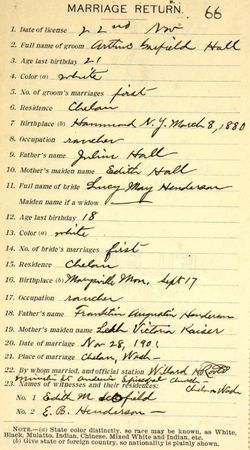 MARRIAGE RETURN. 66
1. Date of license 22nd Nov
2. Full name of groom Arthur Garfield Hall
3. Age last birthday 21
4. Color (a) white
5. No. of groom's marriages first
6. Residence Chelan
7. Birthplace (b) Hammond N.Y. March 8, 1880
8. Occupation rancher
9. Father's name Julius Hall
10. Mother's maiden name Edith Hall
11. Full name of bride Lucy May Henderson
Maiden name if a widow
12. Age last birthday 18
13. Color (a) white
14. No. of bride's marriages first
15. Residence Chelan
16. Birthplace (b) Maryville Mon. Sept 17
17. Occupation rancher
18. Father's name Franklin Augustus Henderson
19. Mother's maiden name Victoria Kaiser
20. Date of marriage Nov 28, 1901
21. Place of marriage Chelan, Wash
22. By whom married, and official station Willard H. Roots
minister St Andrews Episcopal Church Chelan Wash
23. Names of witnesses and their residences:
No. 1 Edith M.
No. 2 E. B. Henderson
NOTE.—(a) State color distinctly, so race may be known, as White,
Black, Mulatto, Indian, Chinese, Mixed White and Indian, etc.
(b) Give state or foreign country, so nationality is plainly shown.